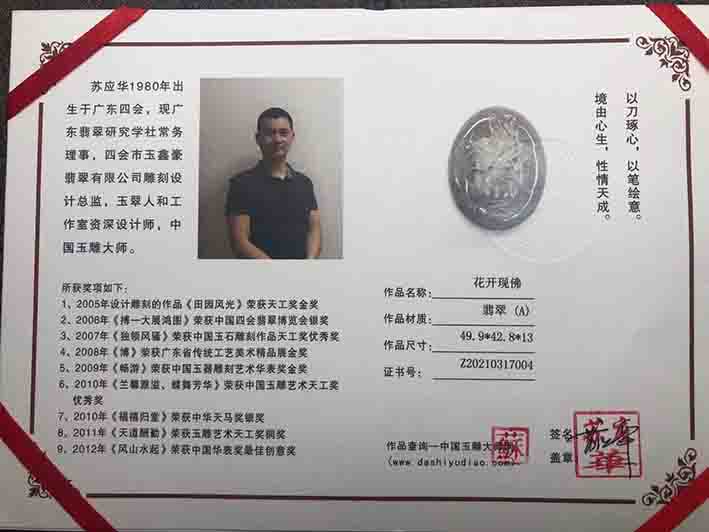 苏应华1980年出
生于广东四会，现广
东翡翠研究学社常务
理事，四会市玉鑫豪
翡翠有限公司雕刻设
计总监，玉翠人和工
作室资深设计师，中
国玉雕大师。
所获奖项如下：
1、2005年设计雕刻的作品《田园风光》荣获天工奖金奖
2、2006年《搏一大展鸿图》荣获中国四会翡翠博览会银奖
3、2007年《独领风骚》荣获中国玉石雕刻作品天工奖优秀奖
4、2008年《博》荣获广东省传统工艺美术精品展金奖
5、2009年《畅游》荣获中国玉器雕刻艺术华表奖金奖
6、2010年《兰馨源溢、蝶舞芳华》荣获中国玉雕艺术天工奖
优秀奖
7、2010年《福禧归堂》荣获中华天马奖银奖
8、2011年《天道酬勤》荣获玉雕艺术天工奖铜奖
9、2012年《风山水起》荣获中国华表奖最佳创意奖
以刀琢心，以笔绘意。
境由心生，性情天成。
作品名称：花开现佛
作品材质：翡翠 (A)
作品尺寸：49.9*42.8*13
证书号：Z20210317004
作品查询—中国玉雕大师
(www.dashiyudiao.com)
蘇
签名
盖章